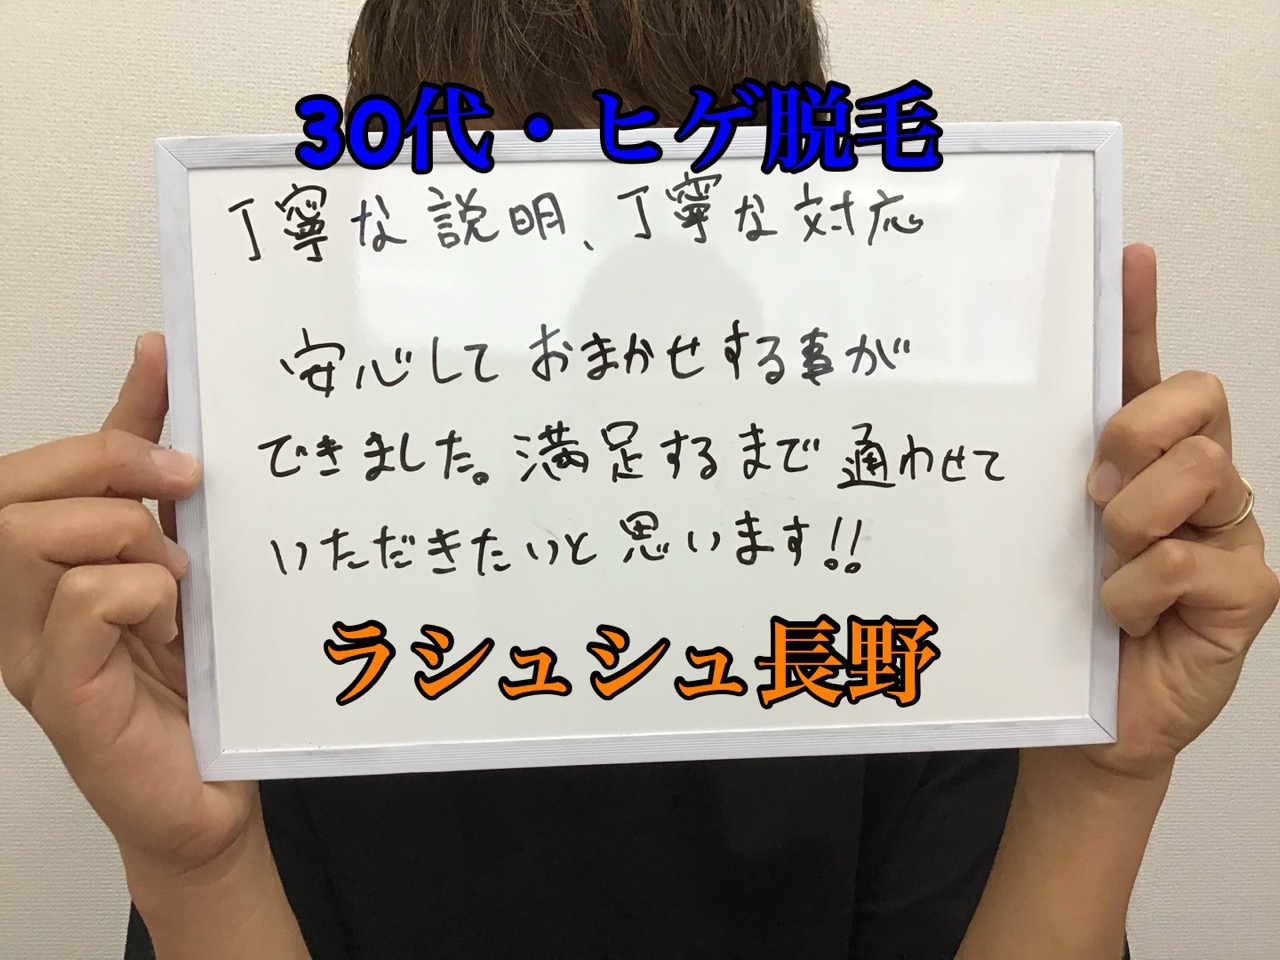 30代・ヒゲ脱毛
丁寧な説明、丁寧な対応
安心しておまかせする事が
できました。満足するまで通わせて
いただきたいと思います!!
ラシュシュ長野